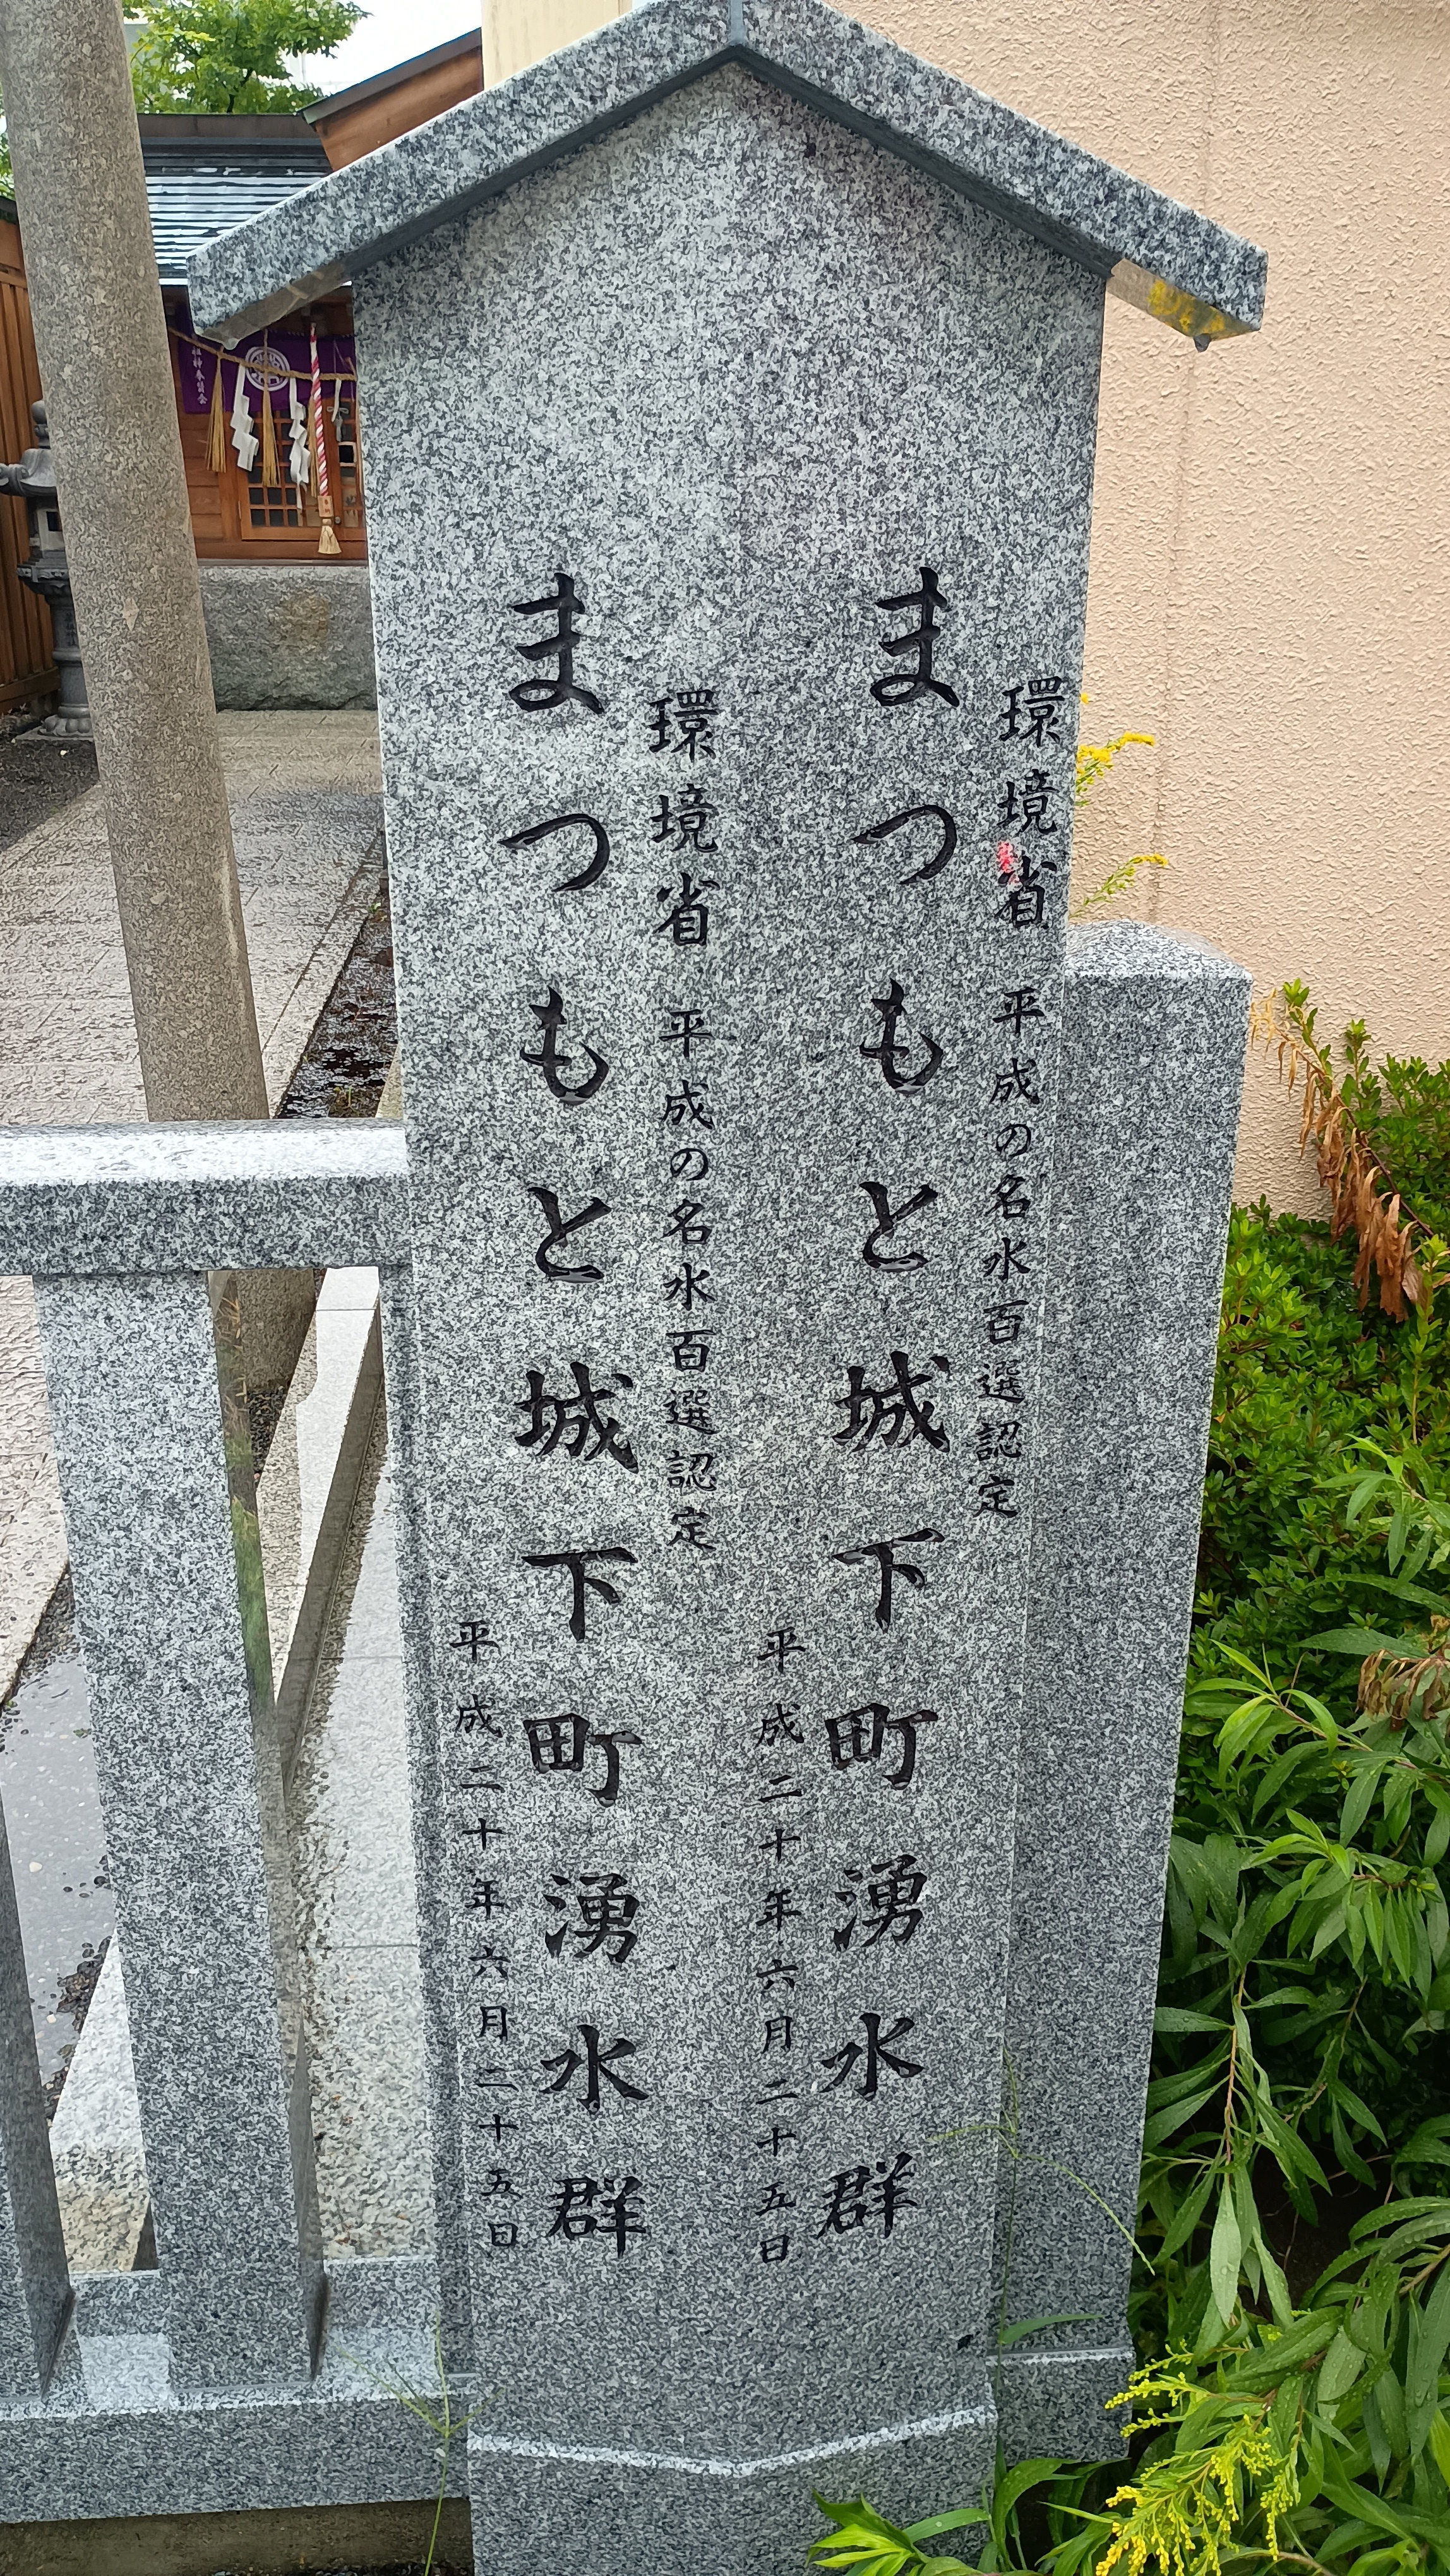 環境省 平成の名水百選認定
まつもと城下町湧水群
平成二十年六月二十五日
環境省 平成の名水百選認定
まつもと城下町湧水群
平成二十年六月二十五日